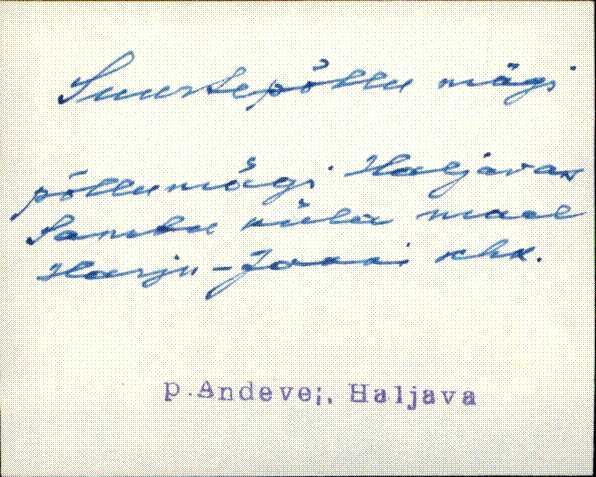 Suurtepõllu mägi
põllumägi Haljavas
Sambu küla maal
Harju-Jaani khk.
p.Andevei, Haljava